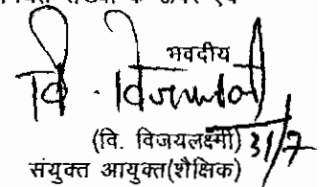 भवदीय
वि. विजयलक्ष्मी
(वि. विजयलक्ष्मी) 31/7
संयुक्त आयुक्त(शैक्षिक)